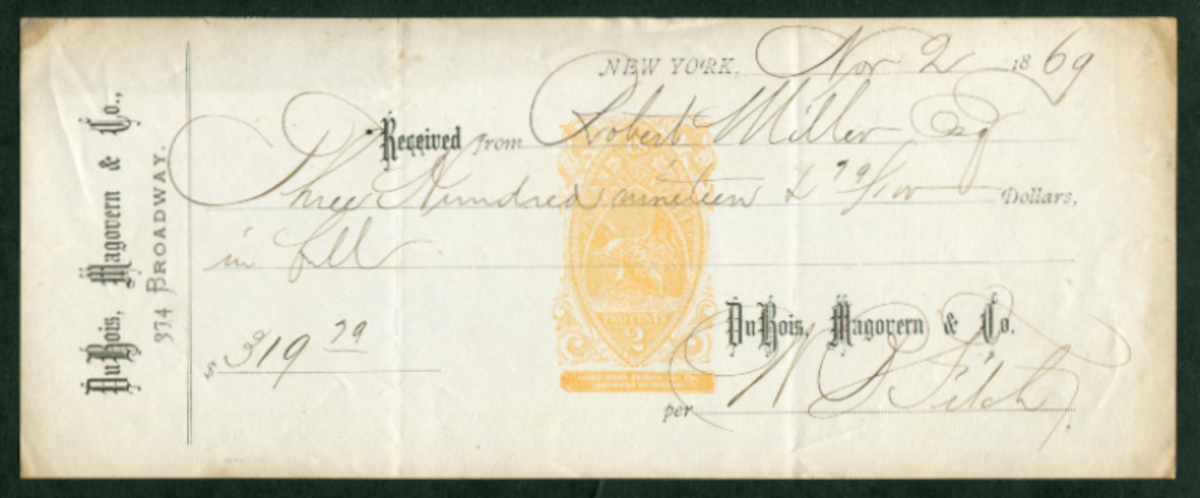 DuBois, Magovern & Co.,
374 BROADWAY.
NEW YORK, Nov 2 1869
Received from Robert Miller Esq
Three Hundred nineteen & 79/100 Dollars,
in full
$ 319 79
TWO CENTS
2
DuBois, Magovern & Co.
per W Fitch